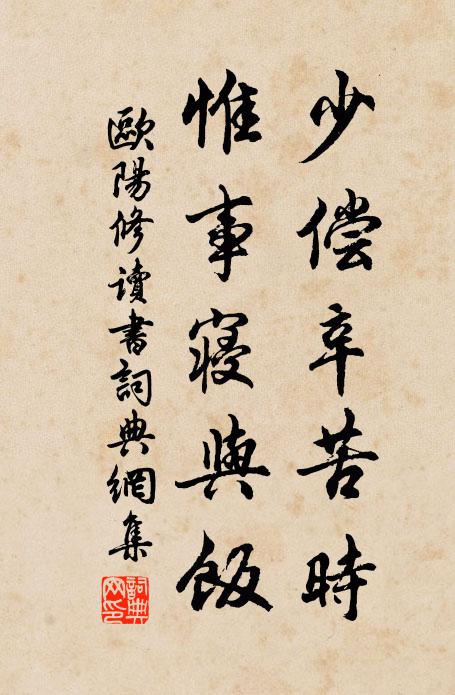 少偿辛苦時
惟事寝與飯
歐陽修讀書詞典網集
詞典網印